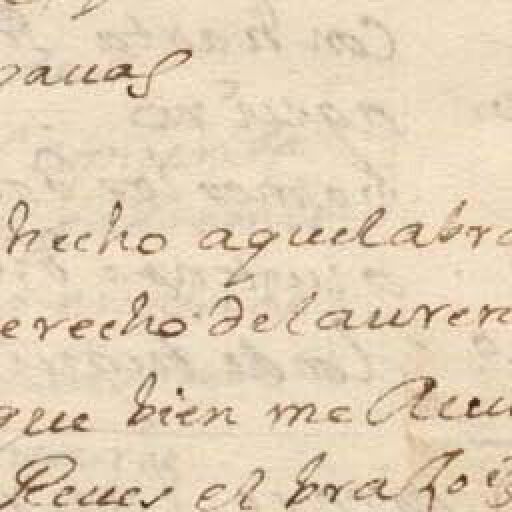 pauas
hecho aquelabra
erecho delauren
que bien me Acu
Reues el braço iz